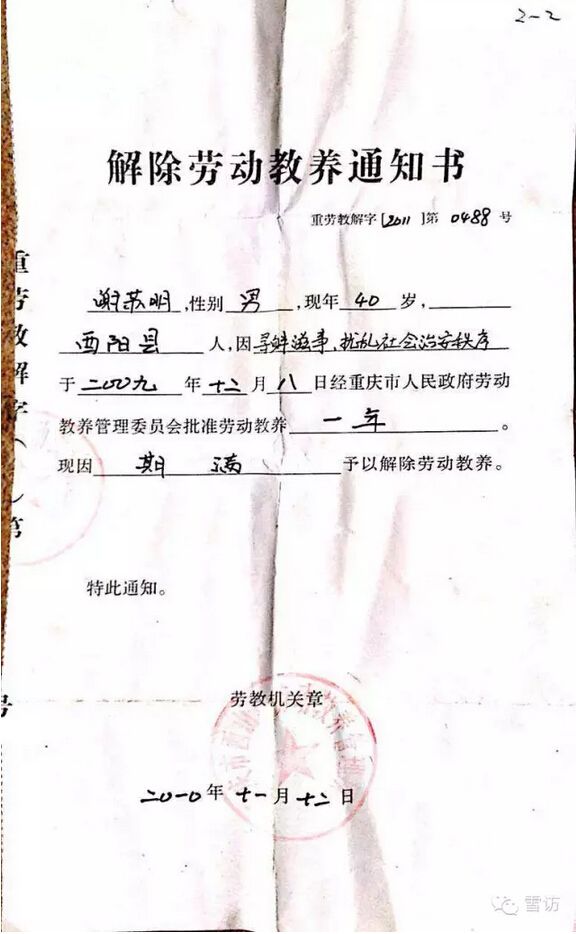 2-2
解除劳动教养通知书
重劳教解字[2011]第 0488 号
谢苏明,性别 男,现年 40 岁,
酉阳县 人,因寻衅滋事、扰乱社会治安秩序
于二00九年十二月八日经重庆市人民政府劳动
教养管理委员会批准劳动教养 一年。
现因 期满 予以解除劳动教养。
特此通知。
劳教机关章
二0一0年十一月十二日
重劳教解字( )第
号
雪访